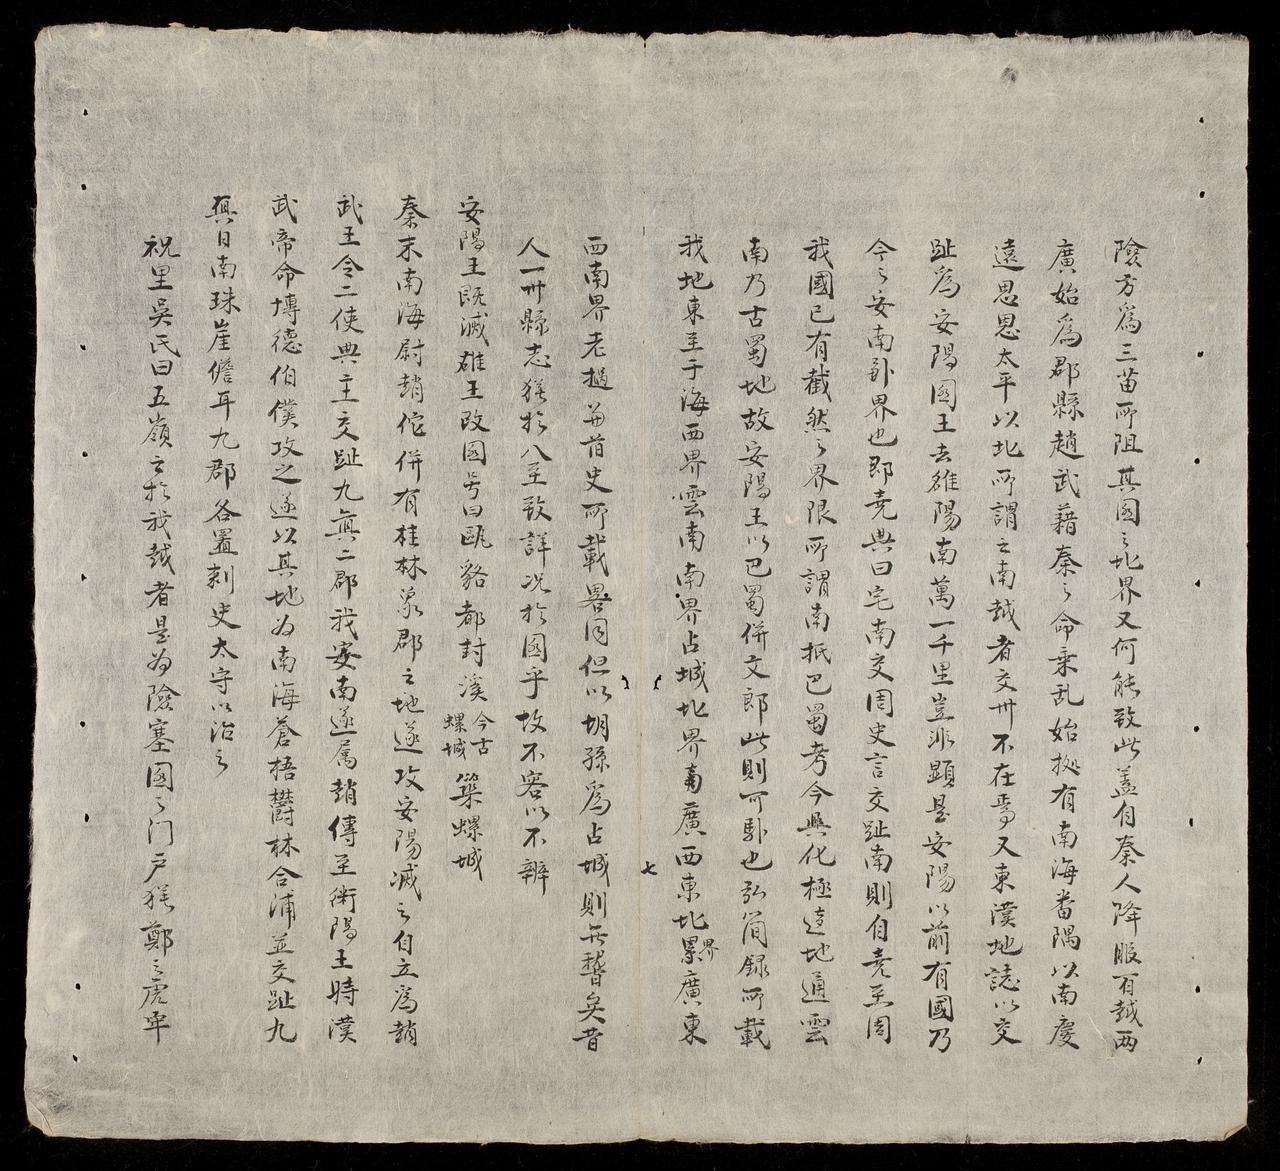 險方為三苗所阻其國之北界又何能致此蓋自秦人降服百越两
廣始為郡縣趙武藉秦之命乗乱始拠有南海畨隅以南慶
遠思恩太平以北所謂之南越者交州不在焉又東漢地誌以交
趾為安陽国王去雒陽南萬一千里豈非顕是安陽以前有國乃
今之安南卧界也即尭典曰宅南交周史言交趾南則自尭至周
我國已有截然之界限所謂南抵巴蜀考今興化極逺地通雲
南乃古蜀地故安陽王以巴蜀併文郎此則可馭也弘简録所載
我地東至于海西界雲南南界占城北界廣西東北界廣東
七
西南界老撾並前史所載畧同但以胡孫為占城則無稽矣昔
人一州縣志猶於八至致詳况於國乎故不容以不辨
安陽王既滅雄王改国号曰甌貉都封溪今古螺城築螺城
秦末南海尉趙佗併有桂林象郡之地遂攻安陽滅之自立為趙
武王令二使典主交趾九真二郡我安南遂属趙傳至術陽王時漢
武帝命博德伯僕攻之遂以其地为南海蒼梧欝林合浦並交趾九
真日南珠崖儋耳九郡各置刺史太守以治之
祝里吳氏曰五嶺之於我越者是为險塞國之门户猶鄭之虎牢